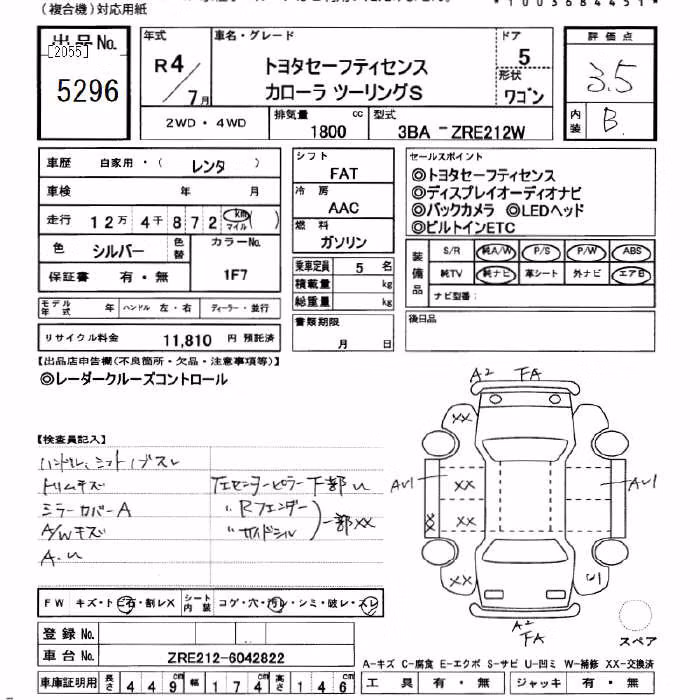 (複合機)対応用紙
*1003684451*
出品No.
[2055]
5296
年式
R4/7月
車名・グレード
トヨタセーフティセンス
カローラ ツーリングS
ドア
5
形状
ワゴン
2WD・4WD
排気量
1800 cc
型式
3BA-ZRE212W
評価点
3.5
内装
B
車歴 自家用・( レンタ )
車検 年 月
走行 12万4千872 km マイル ( )
色 シルバー 色替 カラーNo.
保証書 有・無 1F7
モデル年式 年 ハンドル 左・右 ディーラー・並行
リサイクル料金 11,810 円 預託済
シフト
FAT
冷房
AAC
燃料
ガソリン
乗車定員 5 名
積載量 kg
総重量 kg
書類期限
月 日
セールスポイント
◎トヨタセーフティセンス
◎ディスプレイオーディオナビ
◎バックカメラ ◎LEDヘッド
◎ビルトインETC
装備品
S/R 純A/W P/S P/W ABS
純TV 純ナビ 革シート 外ナビ エアB
ナビ型番:
後日品
【出品店申告欄(不良箇所・欠品・注意事項等)】
◎レーダークルーズコントロール
【検査員記入】
ハンドル、シフトノブスレ
トリムキズ
ミラーカバーA
A/Wキズ
A.U
左センターピラー下部U
〃 Rフェンダー
〃 サイドシル
一部XX
A2 FA
XX
AU1
XX
XX
XX
XX
AU1
U1
A2
FA
スペア
FW キズ・トビ石・割レX シート内装 コゲ・穴・汚レ・シミ・破レ・スレ
登録No.
車台No. ZRE212-6042822
車庫証明用 長さ 449cm 幅 174cm 高さ 146cm
A-キズ C-腐食 E-エクボ S-サビ U-凹ミ W-補修 XX-交換済
工具 有・無 ジャッキ 有・無